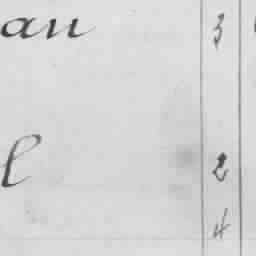 an 3
l 2
4